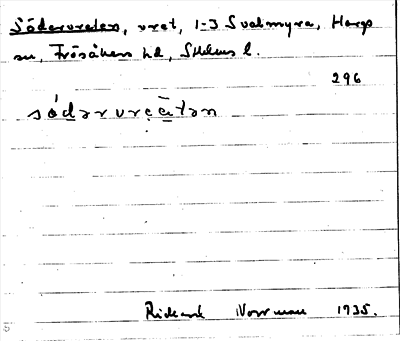 Södervreten, vret, 1-3 Svalmyra, Hargs
sn, Frösåkers hd, Sthlms l.
296
södərvrẹ̄tən
Rickard Norrman 1935.